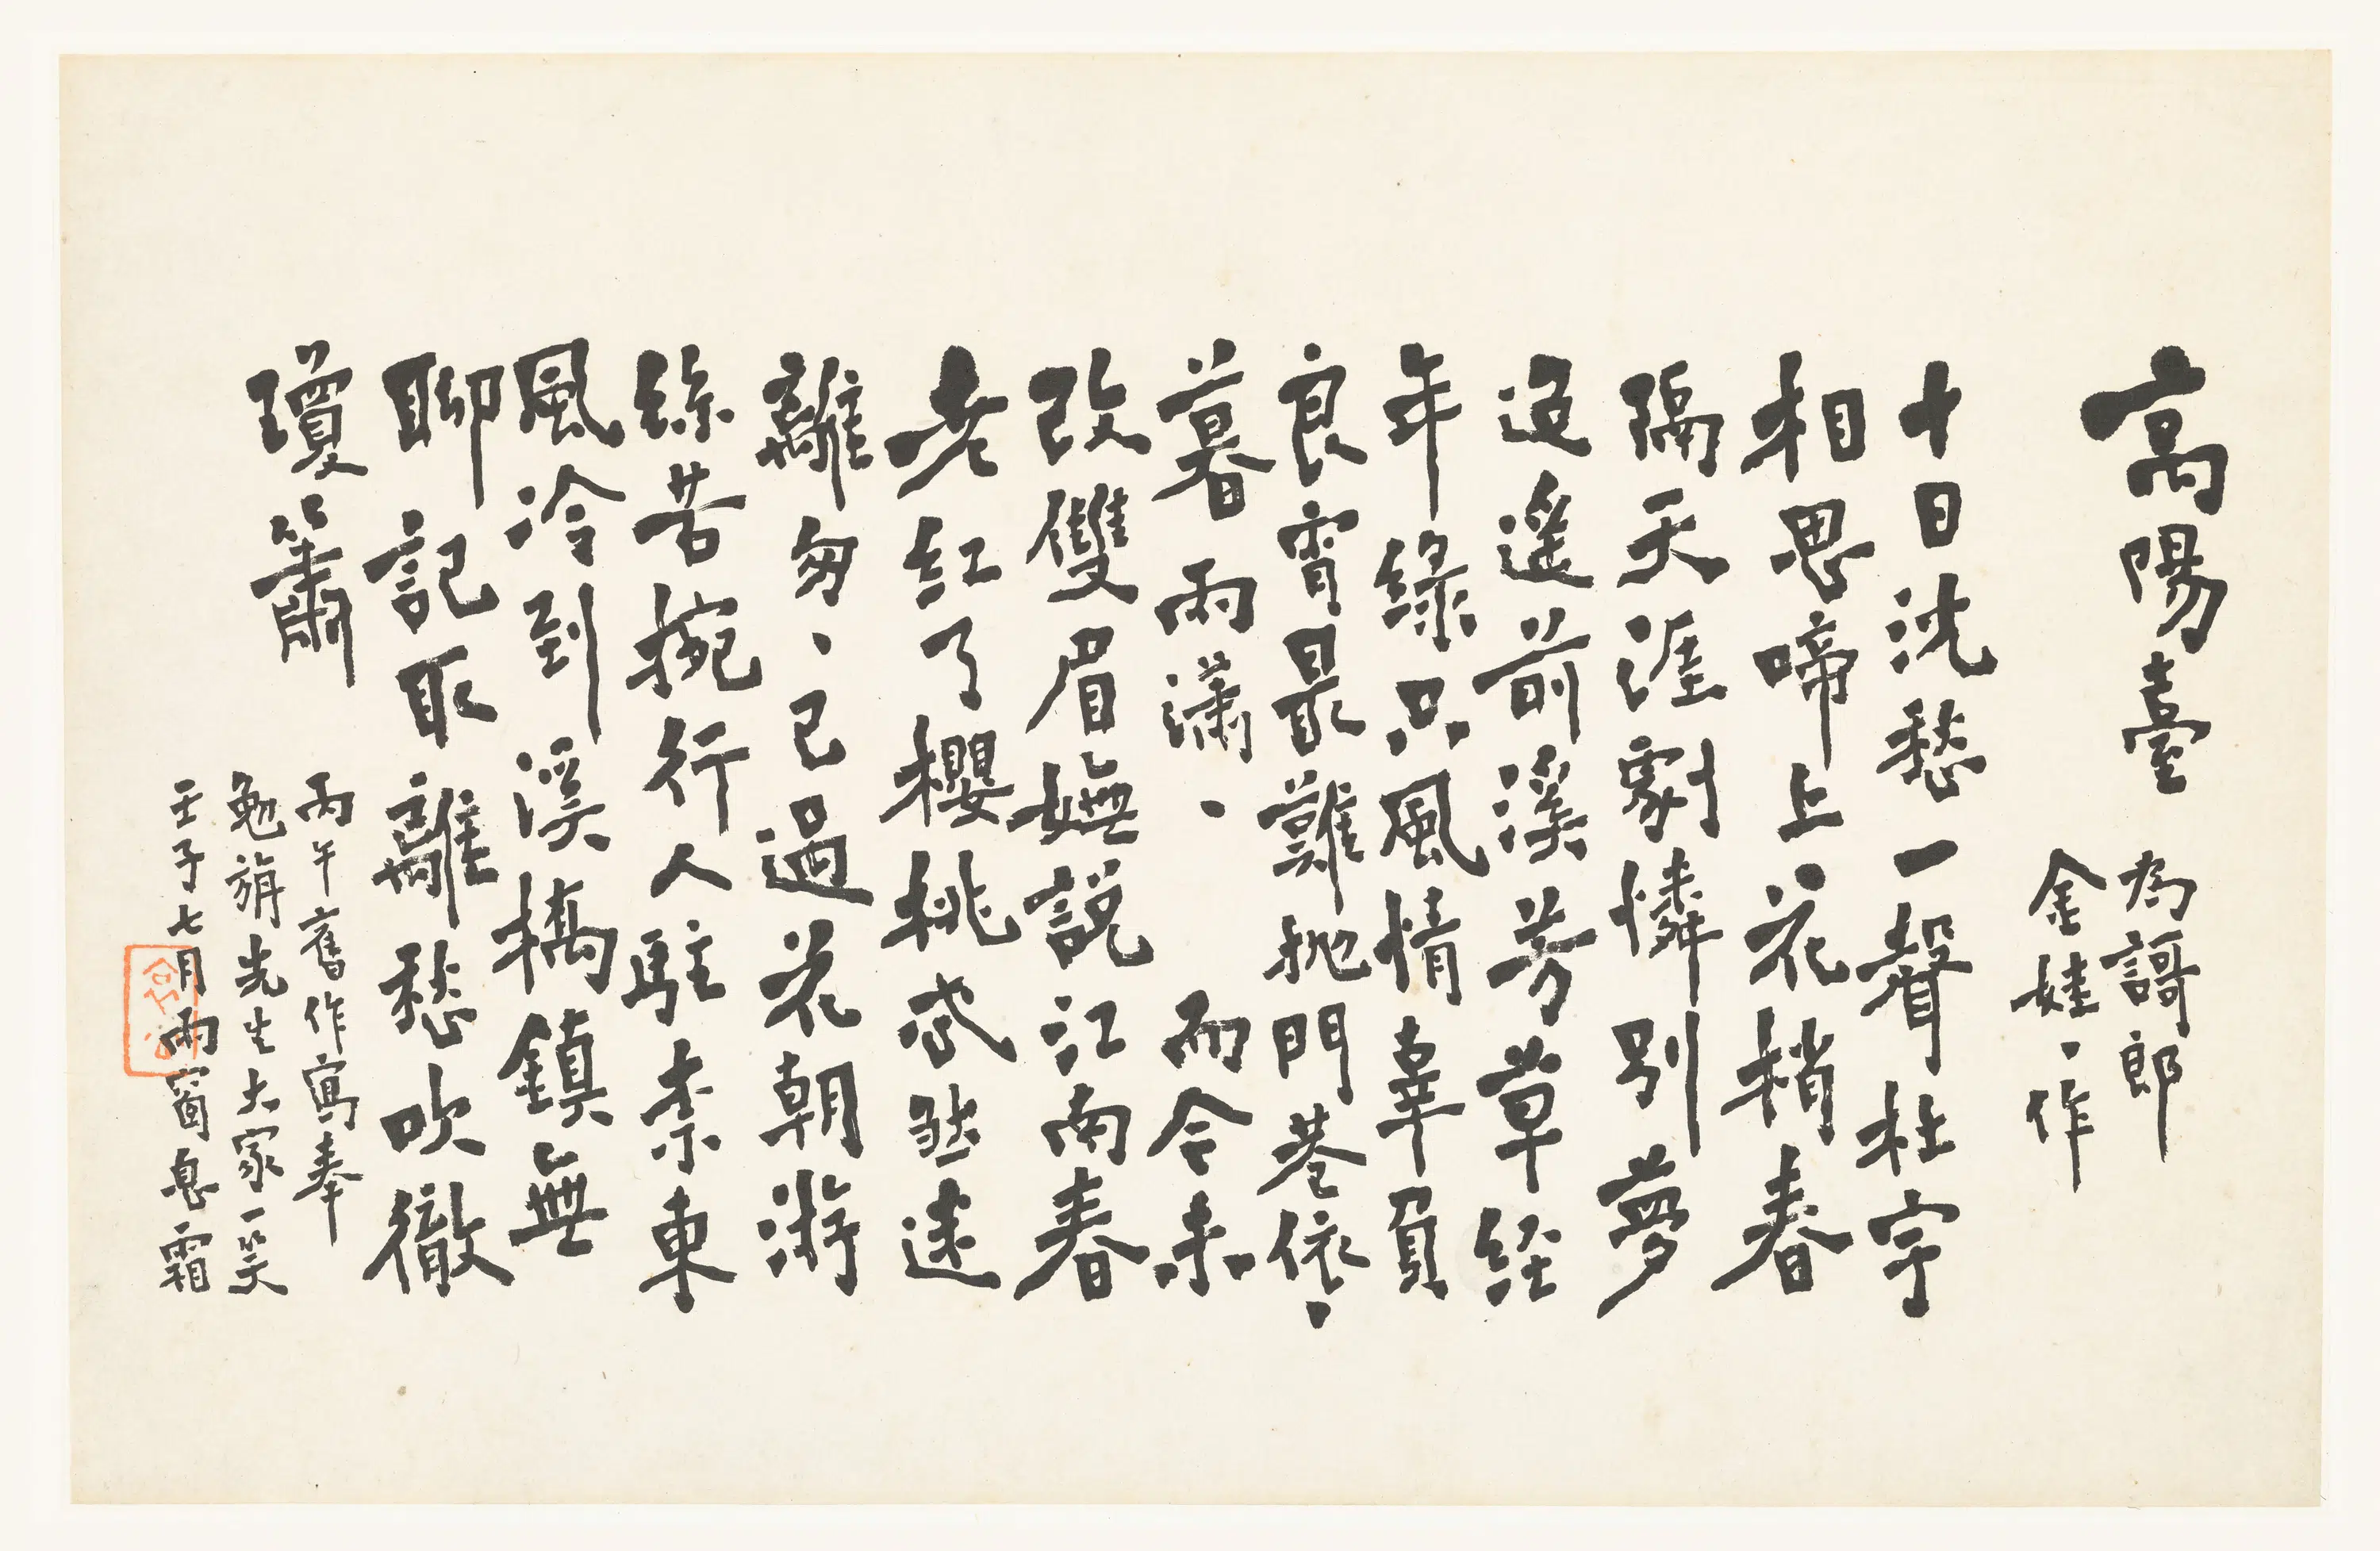 高陽臺
為謌郎
金娃、作
十日沈愁一聲杜宇
相思啼上花梢春
隔天涯劇憐別夢
迢遙前溪芳草經
年綠只風情辜負
良宵最難抛門巷依、
暮雨瀟、而今未
改雙眉嫵說江南春
老紅了櫻桃忒煞迷
離匆、已過花朝游
絲苦挽行人駐柰東
風冷到溪橋鎮無
聊記取離愁吹徹
瓊簫
丙午舊作寫奉
勉旃先生大家一笑
壬子七月雨窗息霜